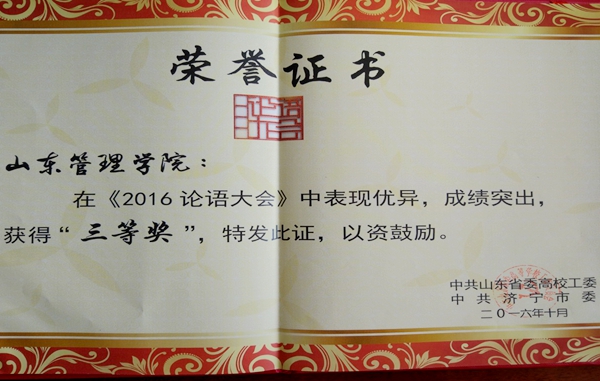 荣誉证书
论语
大会
山东管理学院：
在《2016 论语大会》中表现优异，成绩突出，
获得“三等奖”，特发此证，以资鼓励。
中共山东省委高校工委
中共济宁市委
二〇一六年十月